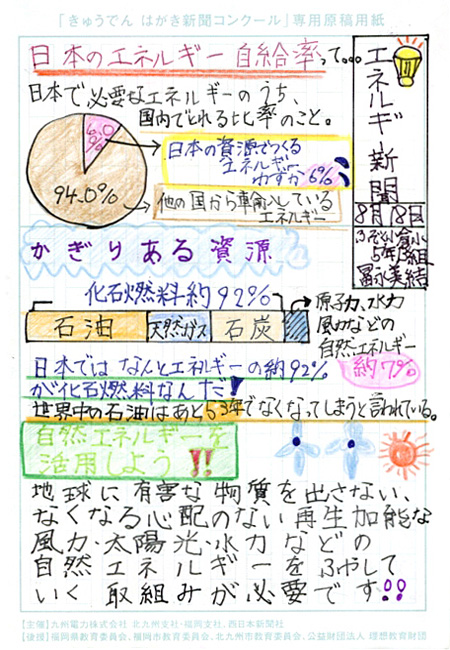 「きゅうでん はがき新聞コンクール」専用原稿用紙
日本のエネルギー自給率って…
日本で必要なエネルギーのうち、
国内でとれる比率のこと。
6.0%
94.0%
日本の資源でつくる
エネルギー
わずか6%
他の国から輸入している
エネルギー
エネルギー新聞
8月18日
5年
かぎりある資源
化石燃料約92%
石油
天然ガス
石炭
原子力、水力
風力などの
自然エネルギー
約7%
日本ではなんとエネルギーの約92%
が化石燃料なんだ
世界中の石油はあと53年でなくなってしまうと言われている。
自然エネルギーを
活用しよう!!
地球に有害な物質を出さない、
なくなる心配のない再生加能な
風力・太陽光・水力などの
自然エネルギーをふやして
いく取組みが必要です!!
【主催】九州電力株式会社 北九州支社・福岡支社、西日本新聞社
【後援】福岡県教育委員会、福岡市教育委員会、北九州市教育委員会、公益財団法人 理想教育財団